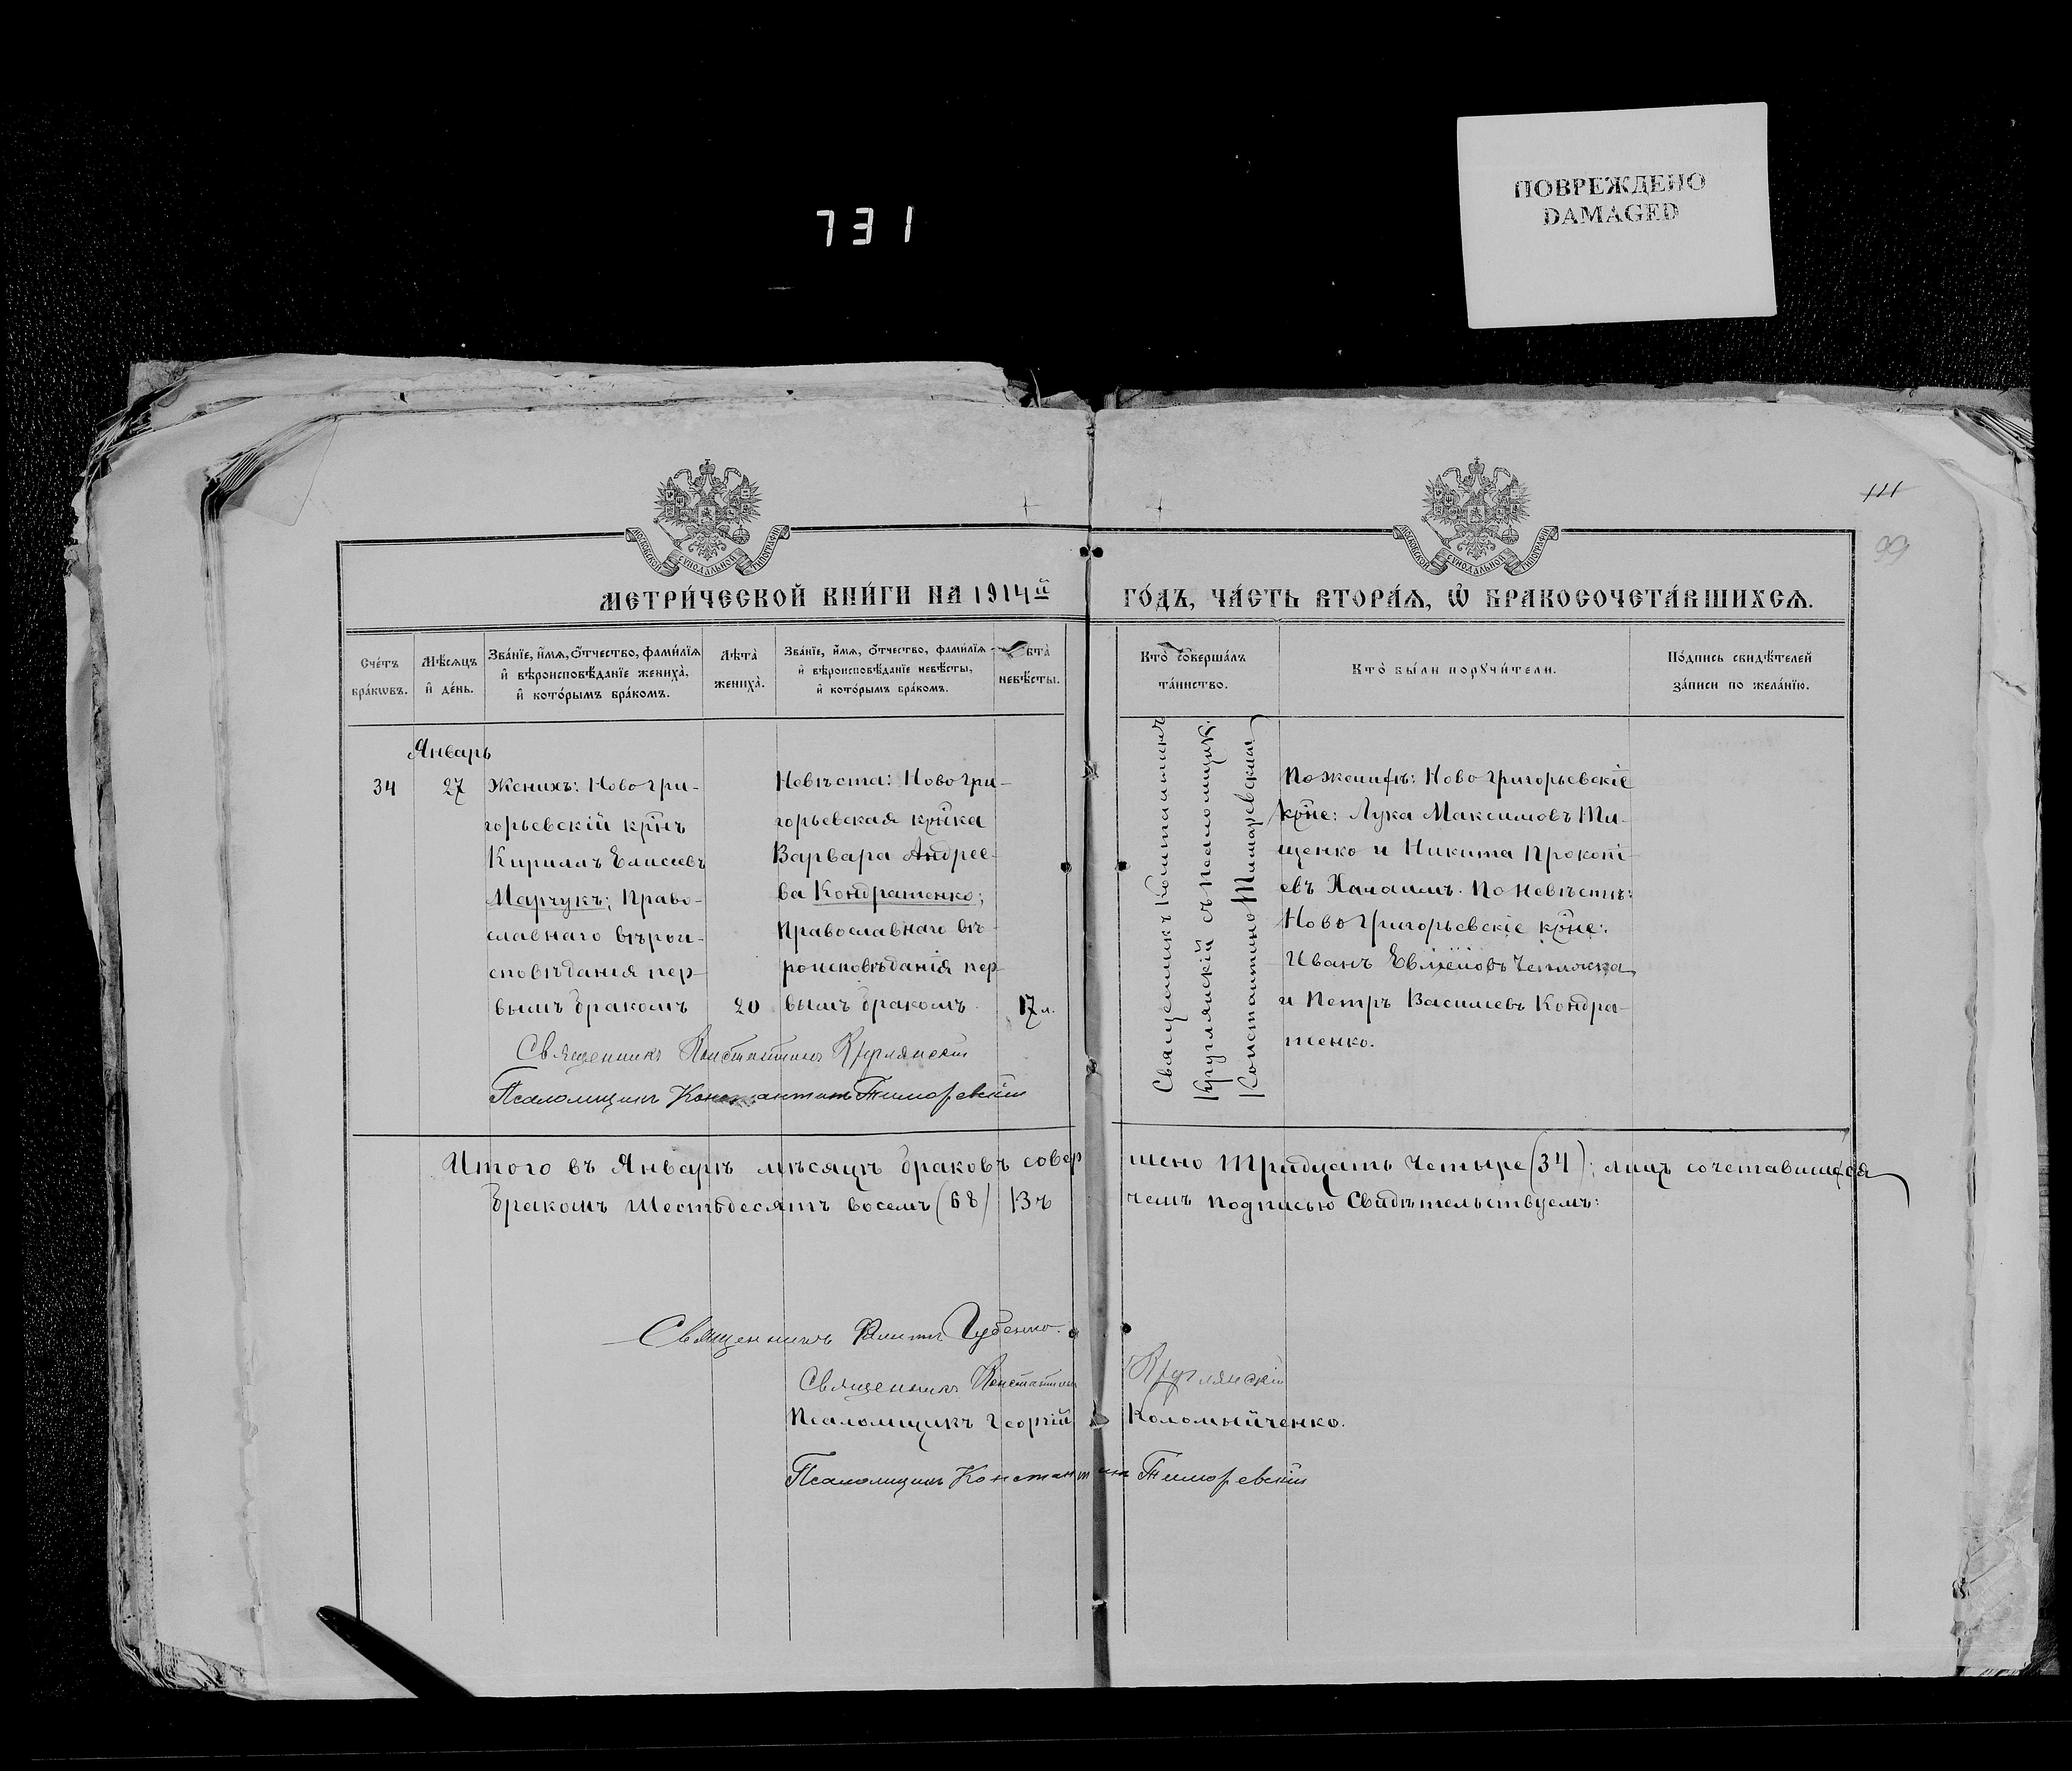 731
ПОВРЕЖДЕНО
DAMAGED
111
99
МОСКОВСКОЙ СУНОДАЛЬНОЙ ТИПОГРАФІИ
МОСКОВСКОЙ СУНОДАЛЬНОЙ ТИПОГРАФІИ
МЕТРИ́ЧЕСКОЙ КНИ́ГИ НА 1914й ГО́ДЪ, ЧА́СТЬ ВТОРА́Ѧ, Ѿ БРАКОСОЧЕТА́ВШИХСѦ.
Сче́тъ
бра́кѡвъ.
Мѣ́сѧцъ
и҆ де́нь.
Зва́нїе, и҆́мѧ, ѻ҆́тчество, фами́лїѧ
и҆ вѣроисповѣ́данїе жениха̀,
и҆ кото́рымъ бра́комъ.
Лѣта̀
жениха̀.
Зва́нїе, и҆́мѧ, ѻ҆́тчество, фами́лїѧ
и҆ вѣроисповѣ́данїе невѣ́сты,
и҆ кото́рымъ бра́комъ.
ѣта̀
невѣ́сты.
Кто̀ соверша́лъ
та́инство.
Кто̀ бы́ли порꙋчи́тели.
По́дпись свидѣ́телей
за́писи по жела́нїю.
Январь
34
27
Женихъ: Новогри-
горьевскій крнъ
Кириллъ Елисеевъ
Марчукъ; Право-
славнаго вѣрои-
сповѣданія пер-
вымъ бракомъ
20
Невѣста: Новогри-
горьевская крнка
Варвара Андрее-
ва Кондратенко;
Православнаго вѣ-
роисповѣданія пер-
вымъ бракомъ.
17 л.
Священникъ Константинъ
Круглянскій съ псаломщик.
Константиномъ
По женихѣ: Новогригорьевскіе
крне: Лука Максимовъ Ти-
щенко и Никита Прокопі-
евъ Халаимъ. По невѣстѣ:
Новогригорьевскіе крне:
Иванъ
и Петръ Василіевъ Кондра-
тенко.
Священникъ Константинъ Круглянскій
Псаломщикъ Константинъ Тиморевскій
Итого въ Январѣ мѣсяцѣ браковъ совершено Тридцать Четыре (34); лицъ сочетавшихся
бракомъ Шестьдесятъ восемь (68) Въ чемъ подписью Свидѣтельствуемъ:
Священникъ Филиппъ Губенко.
Священникъ Константинъ Круглянскій
Псаломщикъ Георгій Коломыйченко.
Псаломщикъ Константинъ Тиморевскій